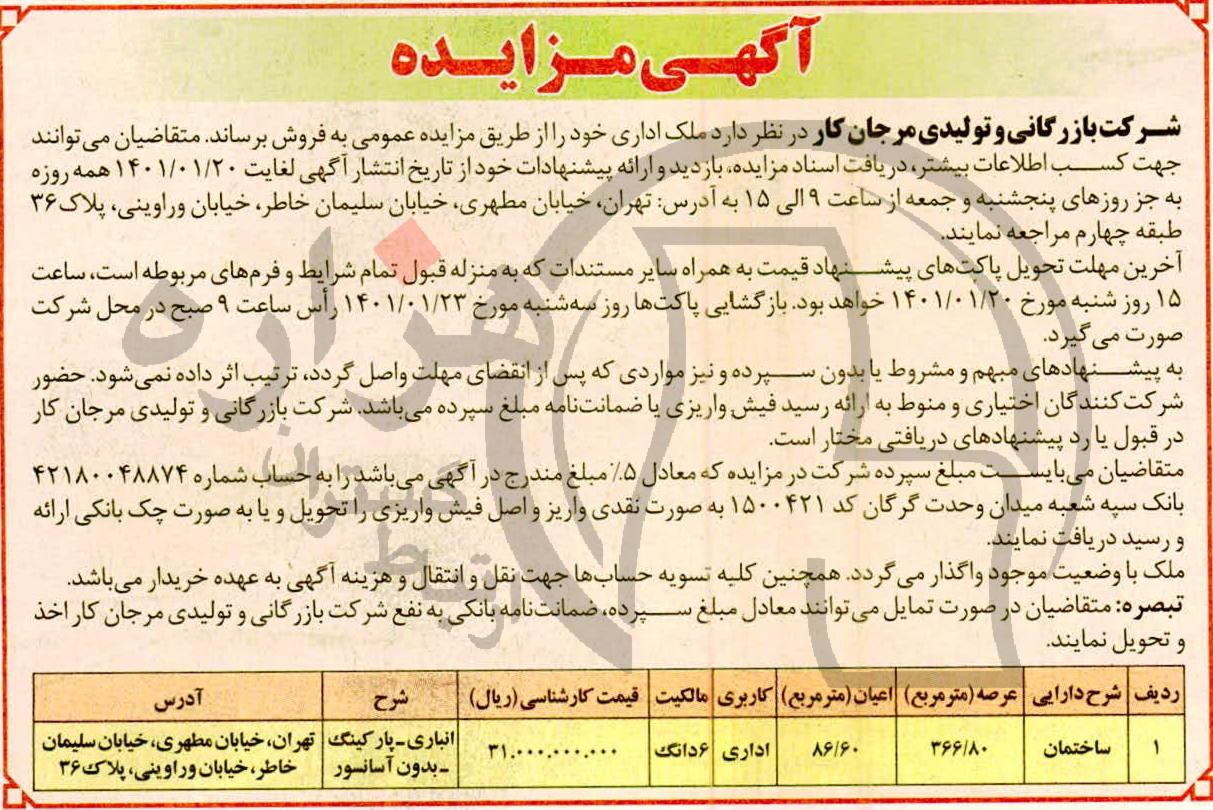 آگهی مزایده
شرکت بازرگانی و تولیدی مرجان کار در نظر دارد ملک اداری خود را از طریق مزایده عمومی به فروش برساند. متقاضیان می‌توانند
جهت کسب اطلاعات بیشتر، دریافت اسناد مزایده، بازدید و ارائه پیشنهادات خود از تاریخ انتشار آگهی لغایت ۱۴۰۱/۰۱/۲۰ همه روزه
به جز روزهای پنجشنبه و جمعه از ساعت ۹ الی ۱۵ به آدرس: تهران، خیابان مطهری، خیابان سلیمان خاطر، خیابان وراوینی، پلاک ۳۶
طبقه چهارم مراجعه نمایند.
آخرین مهلت تحویل پاکت‌های پیشنهاد قیمت به همراه سایر مستندات که به منزله قبول تمام شرایط و فرم‌های مربوطه است، ساعت
۱۵ روز شنبه مورخ ۱۴۰۱/۰۱/۲۰ خواهد بود. بازگشایی پاکت‌ها روز سه‌شنبه مورخ ۱۴۰۱/۰۱/۲۳ رأس ساعت ۹ صبح در محل شرکت
صورت می‌گیرد.
به پیشنهادهای مبهم و مشروط یا بدون سپرده و نیز مواردی که پس از انقضای مهلت واصل گردد، ترتیب اثر داده نمی‌شود. حضور
شرکت‌کنندگان اختیاری و منوط به ارائه رسید فیش واریزی یا ضمانت‌نامه مبلغ سپرده می‌باشد. شرکت بازرگانی و تولیدی مرجان کار
در قبول یا رد پیشنهادهای دریافتی مختار است.
متقاضیان می‌بایست مبلغ سپرده شرکت در مزایده که معادل ۵٪ مبلغ مندرج در آگهی می‌باشد را به حساب شماره ۴۲۱۸۰۰۴۸۸۷۴
بانک سپه شعبه میدان وحدت گرگان کد ۱۵۰۰۴۲۱ به صورت نقدی واریز و اصل فیش واریزی را تحویل و یا به صورت چک بانکی ارائه
و رسید دریافت نمایند.
ملک با وضعیت موجود واگذار می‌گردد. همچنین کلیه تسویه حساب‌ها جهت نقل و انتقال و هزینه آگهی به عهده خریدار می‌باشد.
تبصره: متقاضیان در صورت تمایل می‌توانند معادل مبلغ سپرده، ضمانت‌نامه بانکی به نفع شرکت بازرگانی و تولیدی مرجان کار اخذ
و تحویل نمایند.
ردیف شرح دارایی عرصه (مترمربع) اعیان (مترمربع) کاربری مالکیت قیمت کارشناسی (ریال) شرح آدرس
۱ ساختمان ۳۶۶/۸۰ ۸۶/۶۰ اداری ۶دانگ ۳۱.۰۰۰.۰۰۰.۰۰۰ انباری-پارکینگ تهران، خیابان مطهری، خیابان سلیمان
-بدون آسانسور خاطر، خیابان وراوینی، پلاک ۳۶
هزاره
گستران
ارتباط